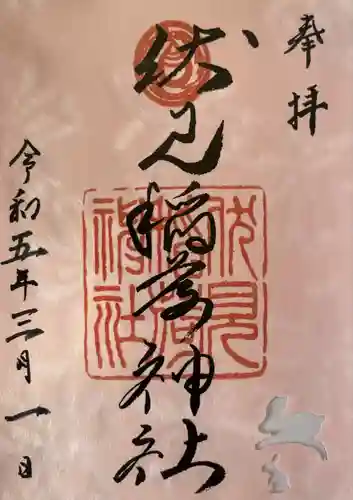 奉拝
伏見稲荷神社
伏見稲荷神社
令和五年三月一日